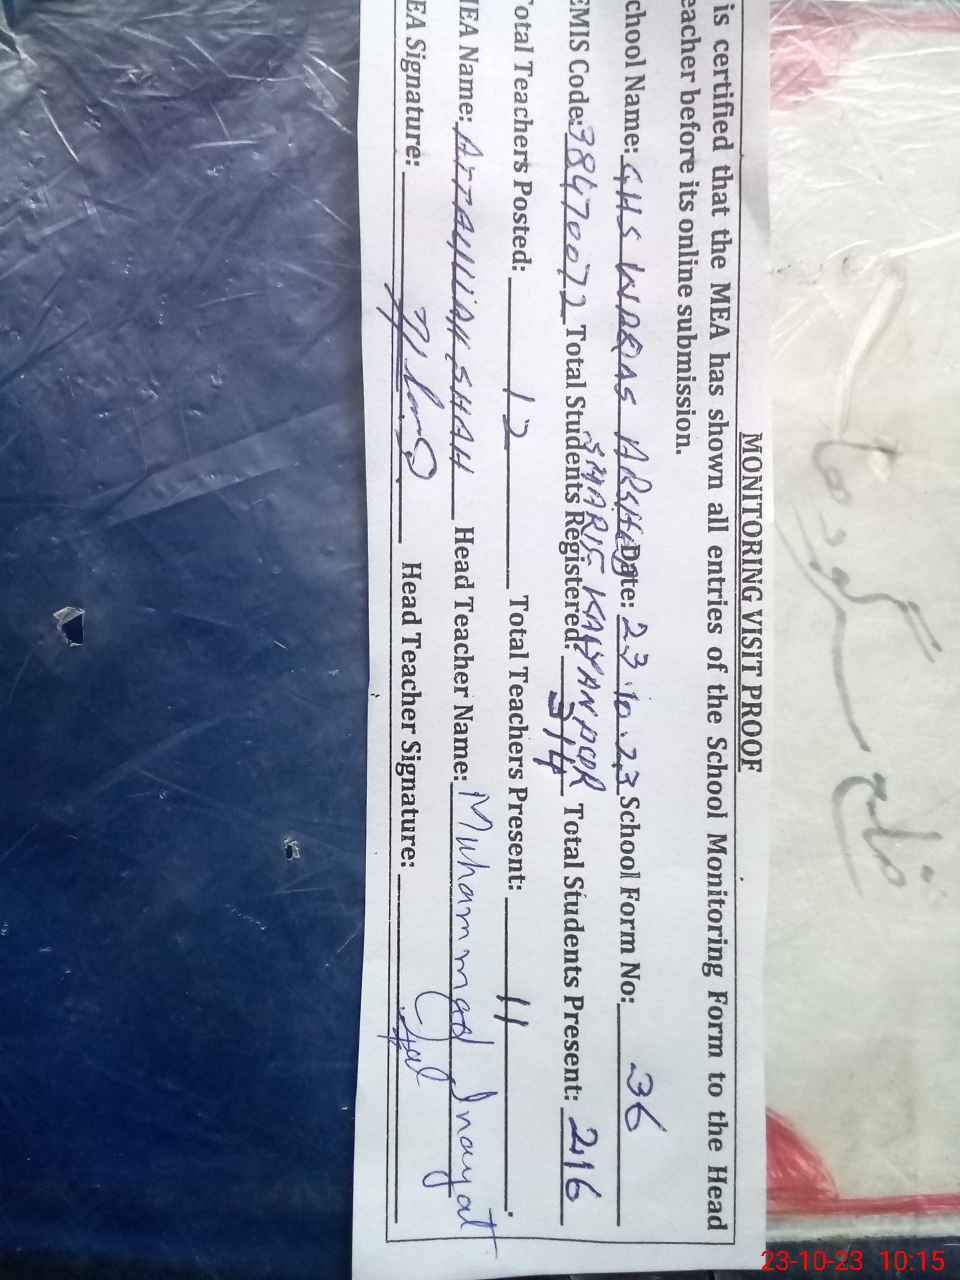 MONITORING VISIT PROOF
is certified that the MEA has shown all entries of the School Monitoring Form to the Head
eacher before its online submission.
chool Name: GHS WARIAS ARSHAD Date: 23.10.23 School Form No: 36
SHARIF KALYANPUR
EMIS Code: 38470072 Total Students Registered: 314 Total Students Present: 216
otal Teachers Posted: 12 Total Teachers Present: 11
MEA Name: ATTAULLAH SHAH Head Teacher Name: Muhammad Inayat
EA Signature: Head Teacher Signature:
23-10-23 10:15